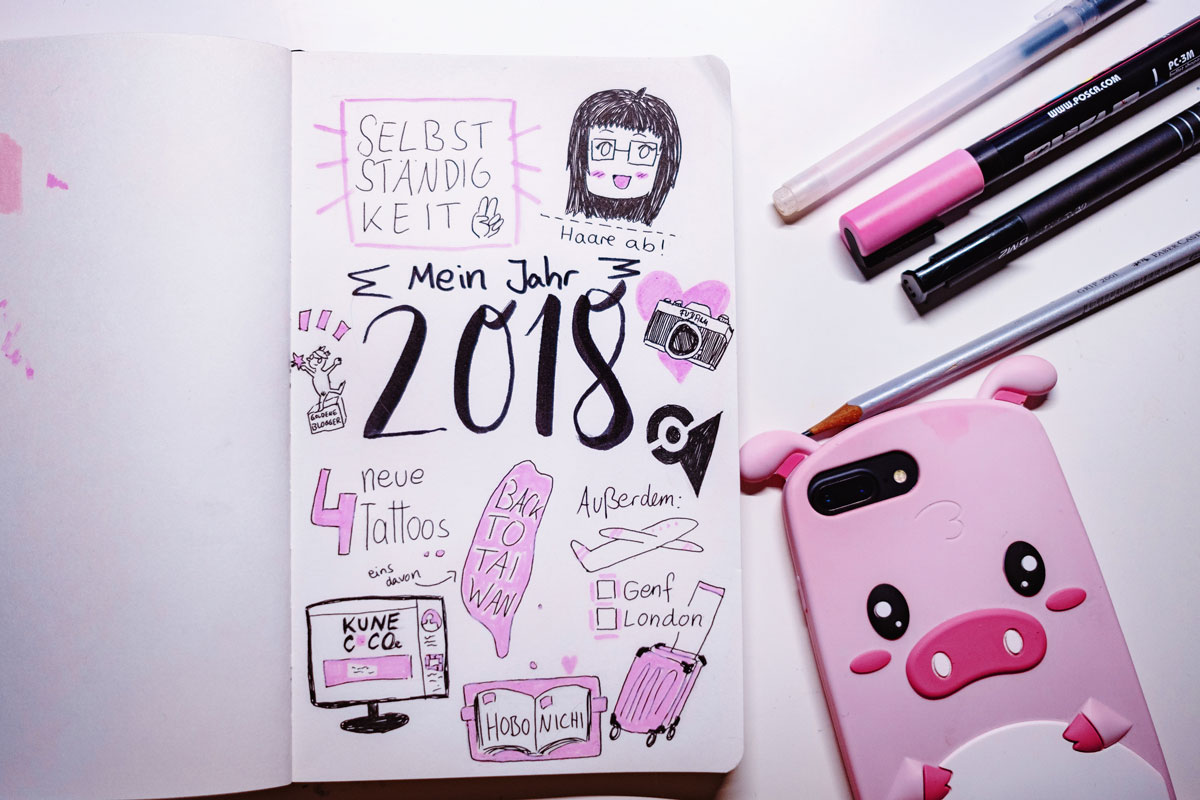 SELBST
STÄNDIG
KEIT
Haare ab!
Mein Jahr
2018
FUJIFILM
GOLDENE
BLOGGER
4 neue
Tattoos
eins
davon
BACK
TO
TAI
WAN
Außerdem:
Genf
London
KUNE
COCO
HOBO NICHI
WWW.POSCA.COM
PC-3M
GRIP 2001
FABER-CASTELL